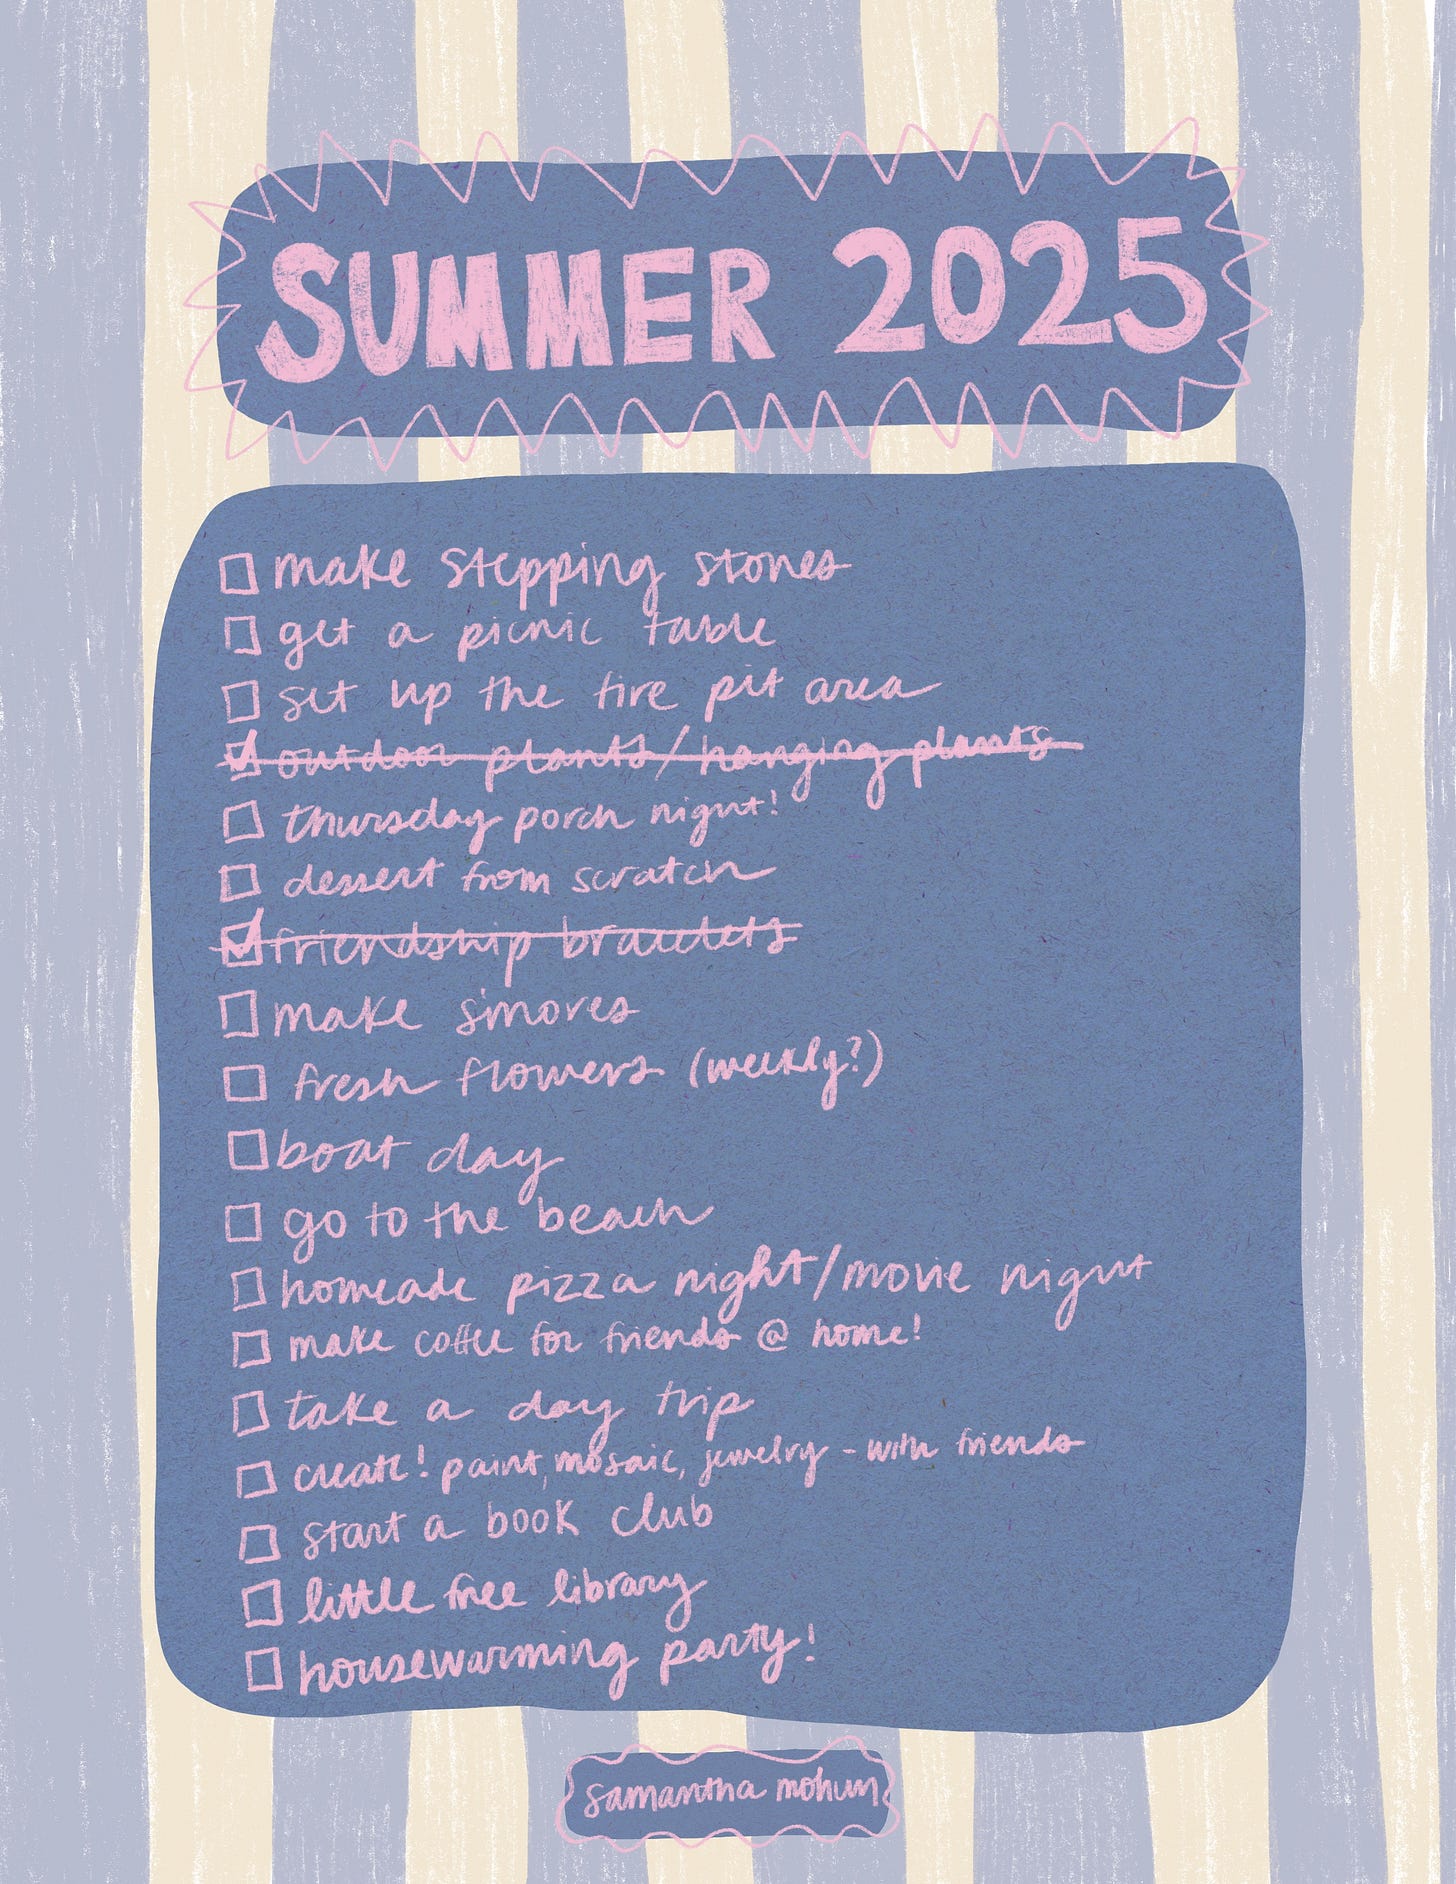 SUMMER 2025
make stepping stones
get a picnic table
set up the fire pit area
outdoor plants/hanging plants
thursday porch night!
dessert from scratch
friendship bracelets
make s'mores
fresh flowers (weekly?)
boat day
go to the beach
homeade pizza night/movie night
make coffee for friends @ home!
take a day trip
create! paint, mosaic, jewelry - with friends
start a book club
little free library
housewarming party!
samantha mohun